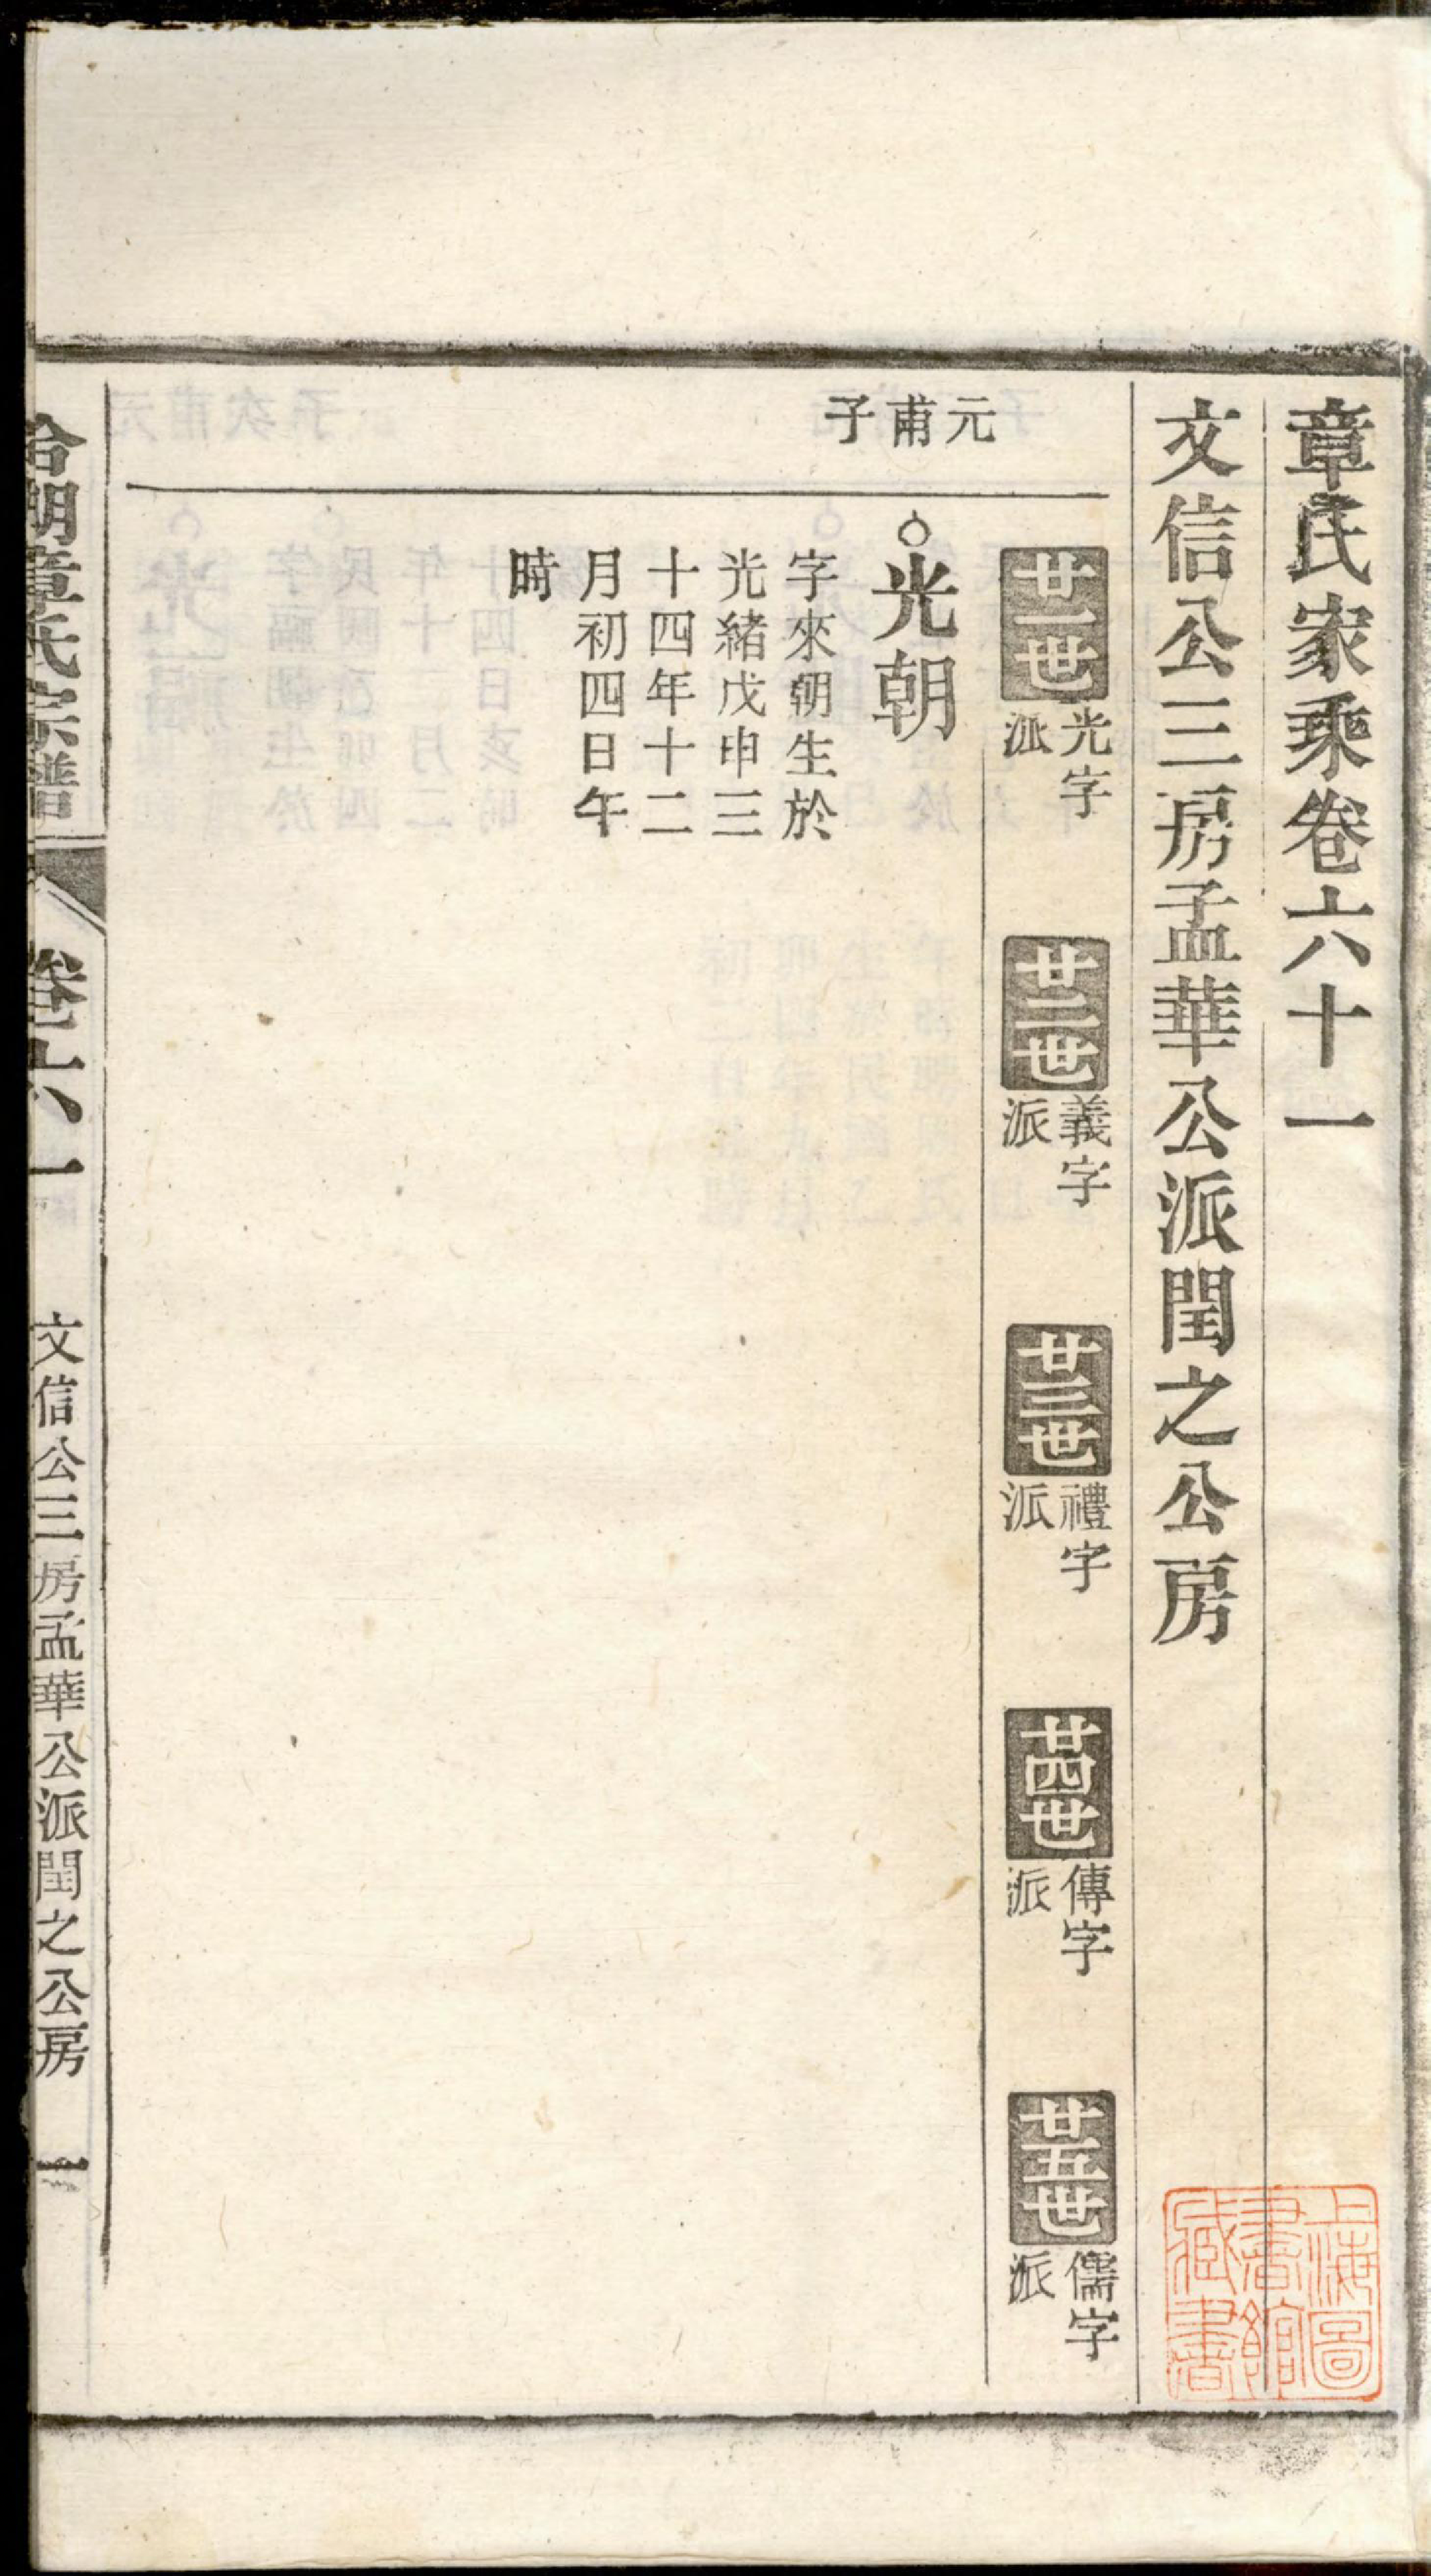 章氏家乘卷六十一
文信公三房孟華公派閏之公房
廿一世 光字派
廿二世 義字派
廿三世 禮字派
廿四世 傳字派
廿五世 儒字派
元甫子
光朝
字來朝生於
光緒戊申三
十四年十二
月初四日午
時
章氏宗譜 卷六一 文信公三房孟華公派閏之公房 一
上海圖書館藏書